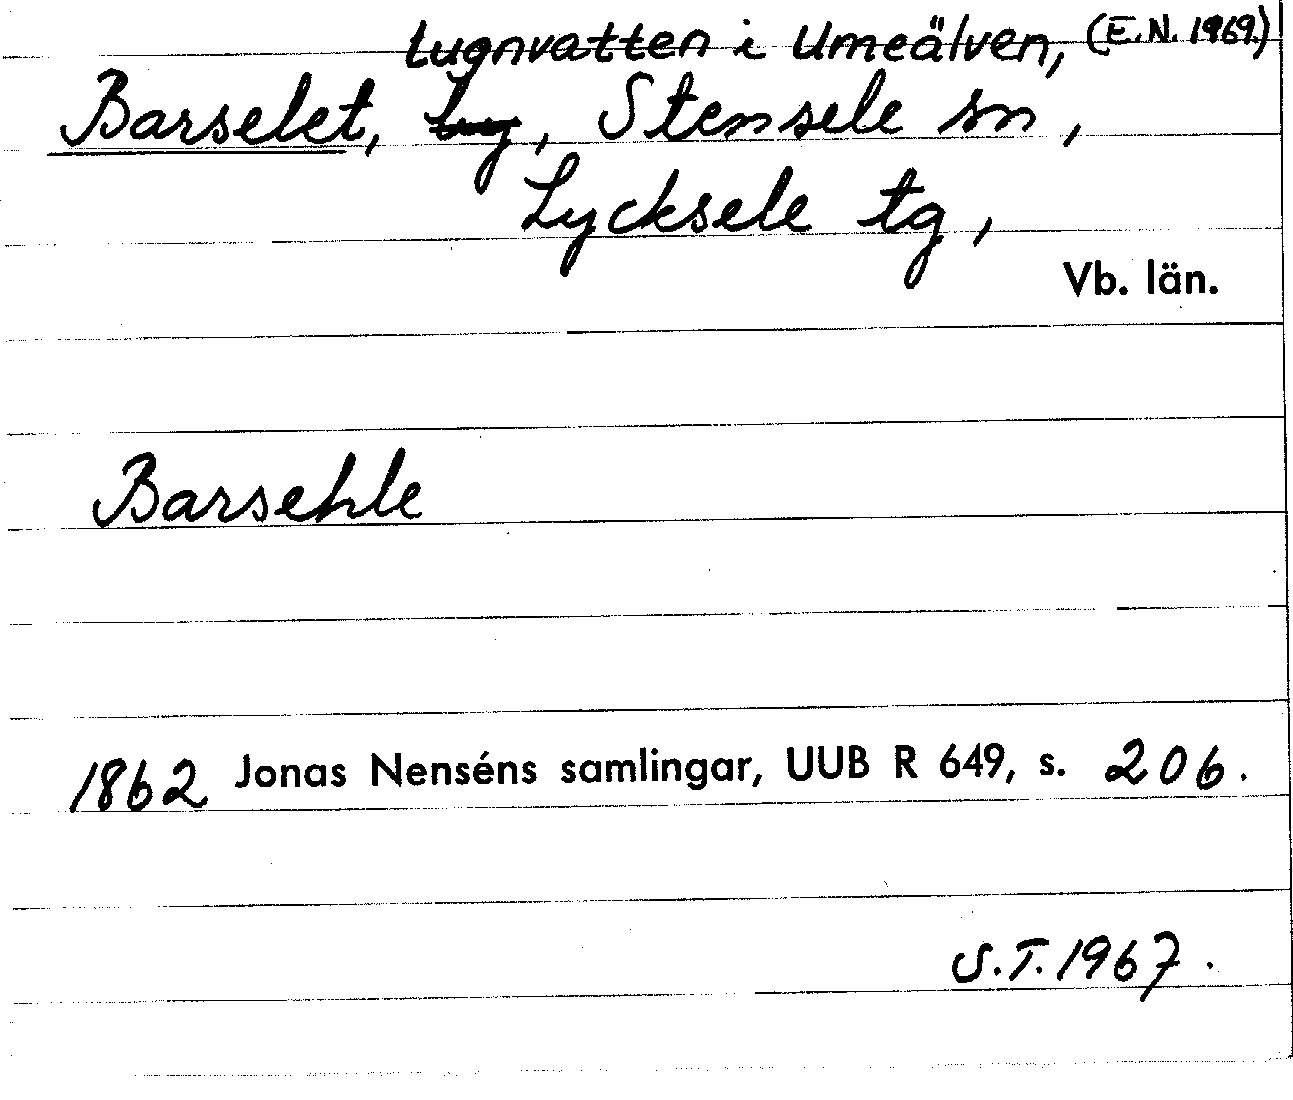 Lugnvatten i Umeälven, (E.N. 1969.)
Barselet, , Stensele sn,
Lycksele tg,
Vb. län.
Barsehle
1862 Jonas Nenséns samlingar, UUB R 649, s. 206.
S.T. 1967.